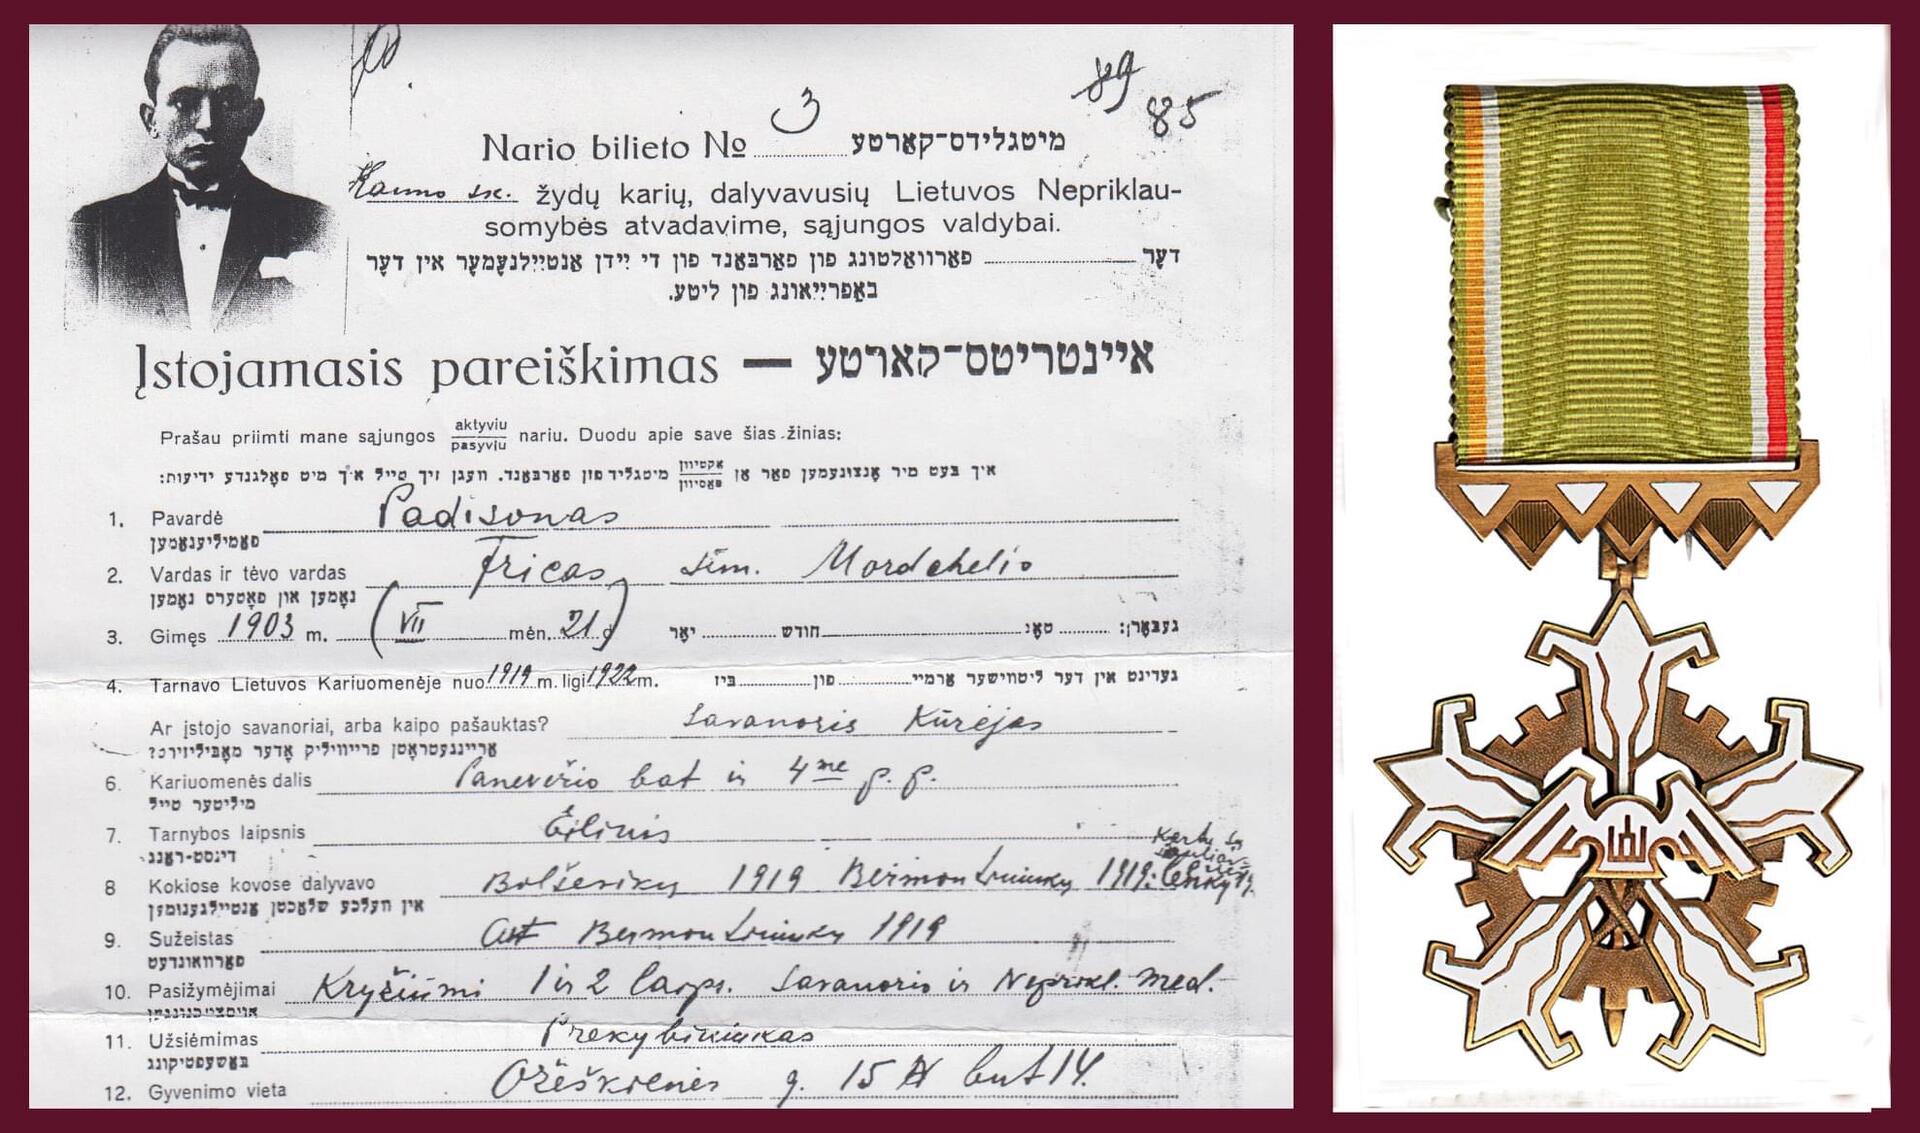 89
85
Nario bilieto № 3 מיטגלידס־קאַרטע
Kauno sk. žydų karių, dalyvavusių Lietuvos Nepriklau-
somybės atvadavime, sąjungos valdybai.
דער פאַרוואַלטונג פון פאַרבאַנד פון די יידן אָנטיילנעמער אין דער
באַפרייאונג פון ליטע.
Įstojamasis pareiškimas — איינטריטס־קאַרטע
Prašau priimti mane sąjungos aktyviu pasyviu nariu. Duodu apie save šias žinias:
איך בעט מיר אָנצונעמען פאַר אַן אַקטיוון פּאַסיוון מיטגליד פון פאַרבאַנד. וועגן זיך טייל איך מיט פאָלגנדע ידיעות:
1. Pavardė Padisonas
פאַמיליענאָמען
2. Vardas ir tėvo vardas Fricas sūn. Mordchelio
נאָמען און פאָטערס נאָמען
3. Gimęs 1903 m. (VII mėn. 21 d) יאָר חודש טאָג געבאָרן:
4. Tarnavo Lietuvos Kariuomenėje nuo 1919 m. ligi 1922 m. ביז פון געדינט אין דער ליטווישער אַרמיי
Ar įstojo savanoriai, arba kaipo pašauktas? Savanoris Kūrėjas
אַריינגעטראָטן פרייוויליק אָדער מאָביליזירט?
6. Kariuomenės dalis Panevėžio bat ir 4me p. p.
מיליטער טייל
7. Tarnybos laipsnis Eilinis
דינסט־ראַנג
8 Kokiose kovose dalyvavo Bolševikų 1919 Bermontininkų 1919: Lenkų
אין וועלכע שלאַכטן אָנטיילגענומען
9. Sužeistas Bermontininkų 1919
פאַרוואונדעט
10. Pasižymėjimai Kryžiumi 1 ir 2 laips. Savanorio ir Neprikl. med.
אויסצייכנונגען
11. Užsiėmimas Prekybininkas
באַשעפטיקונג
12. Gyvenimo vieta Ožeškienės g. 15 № but 14.